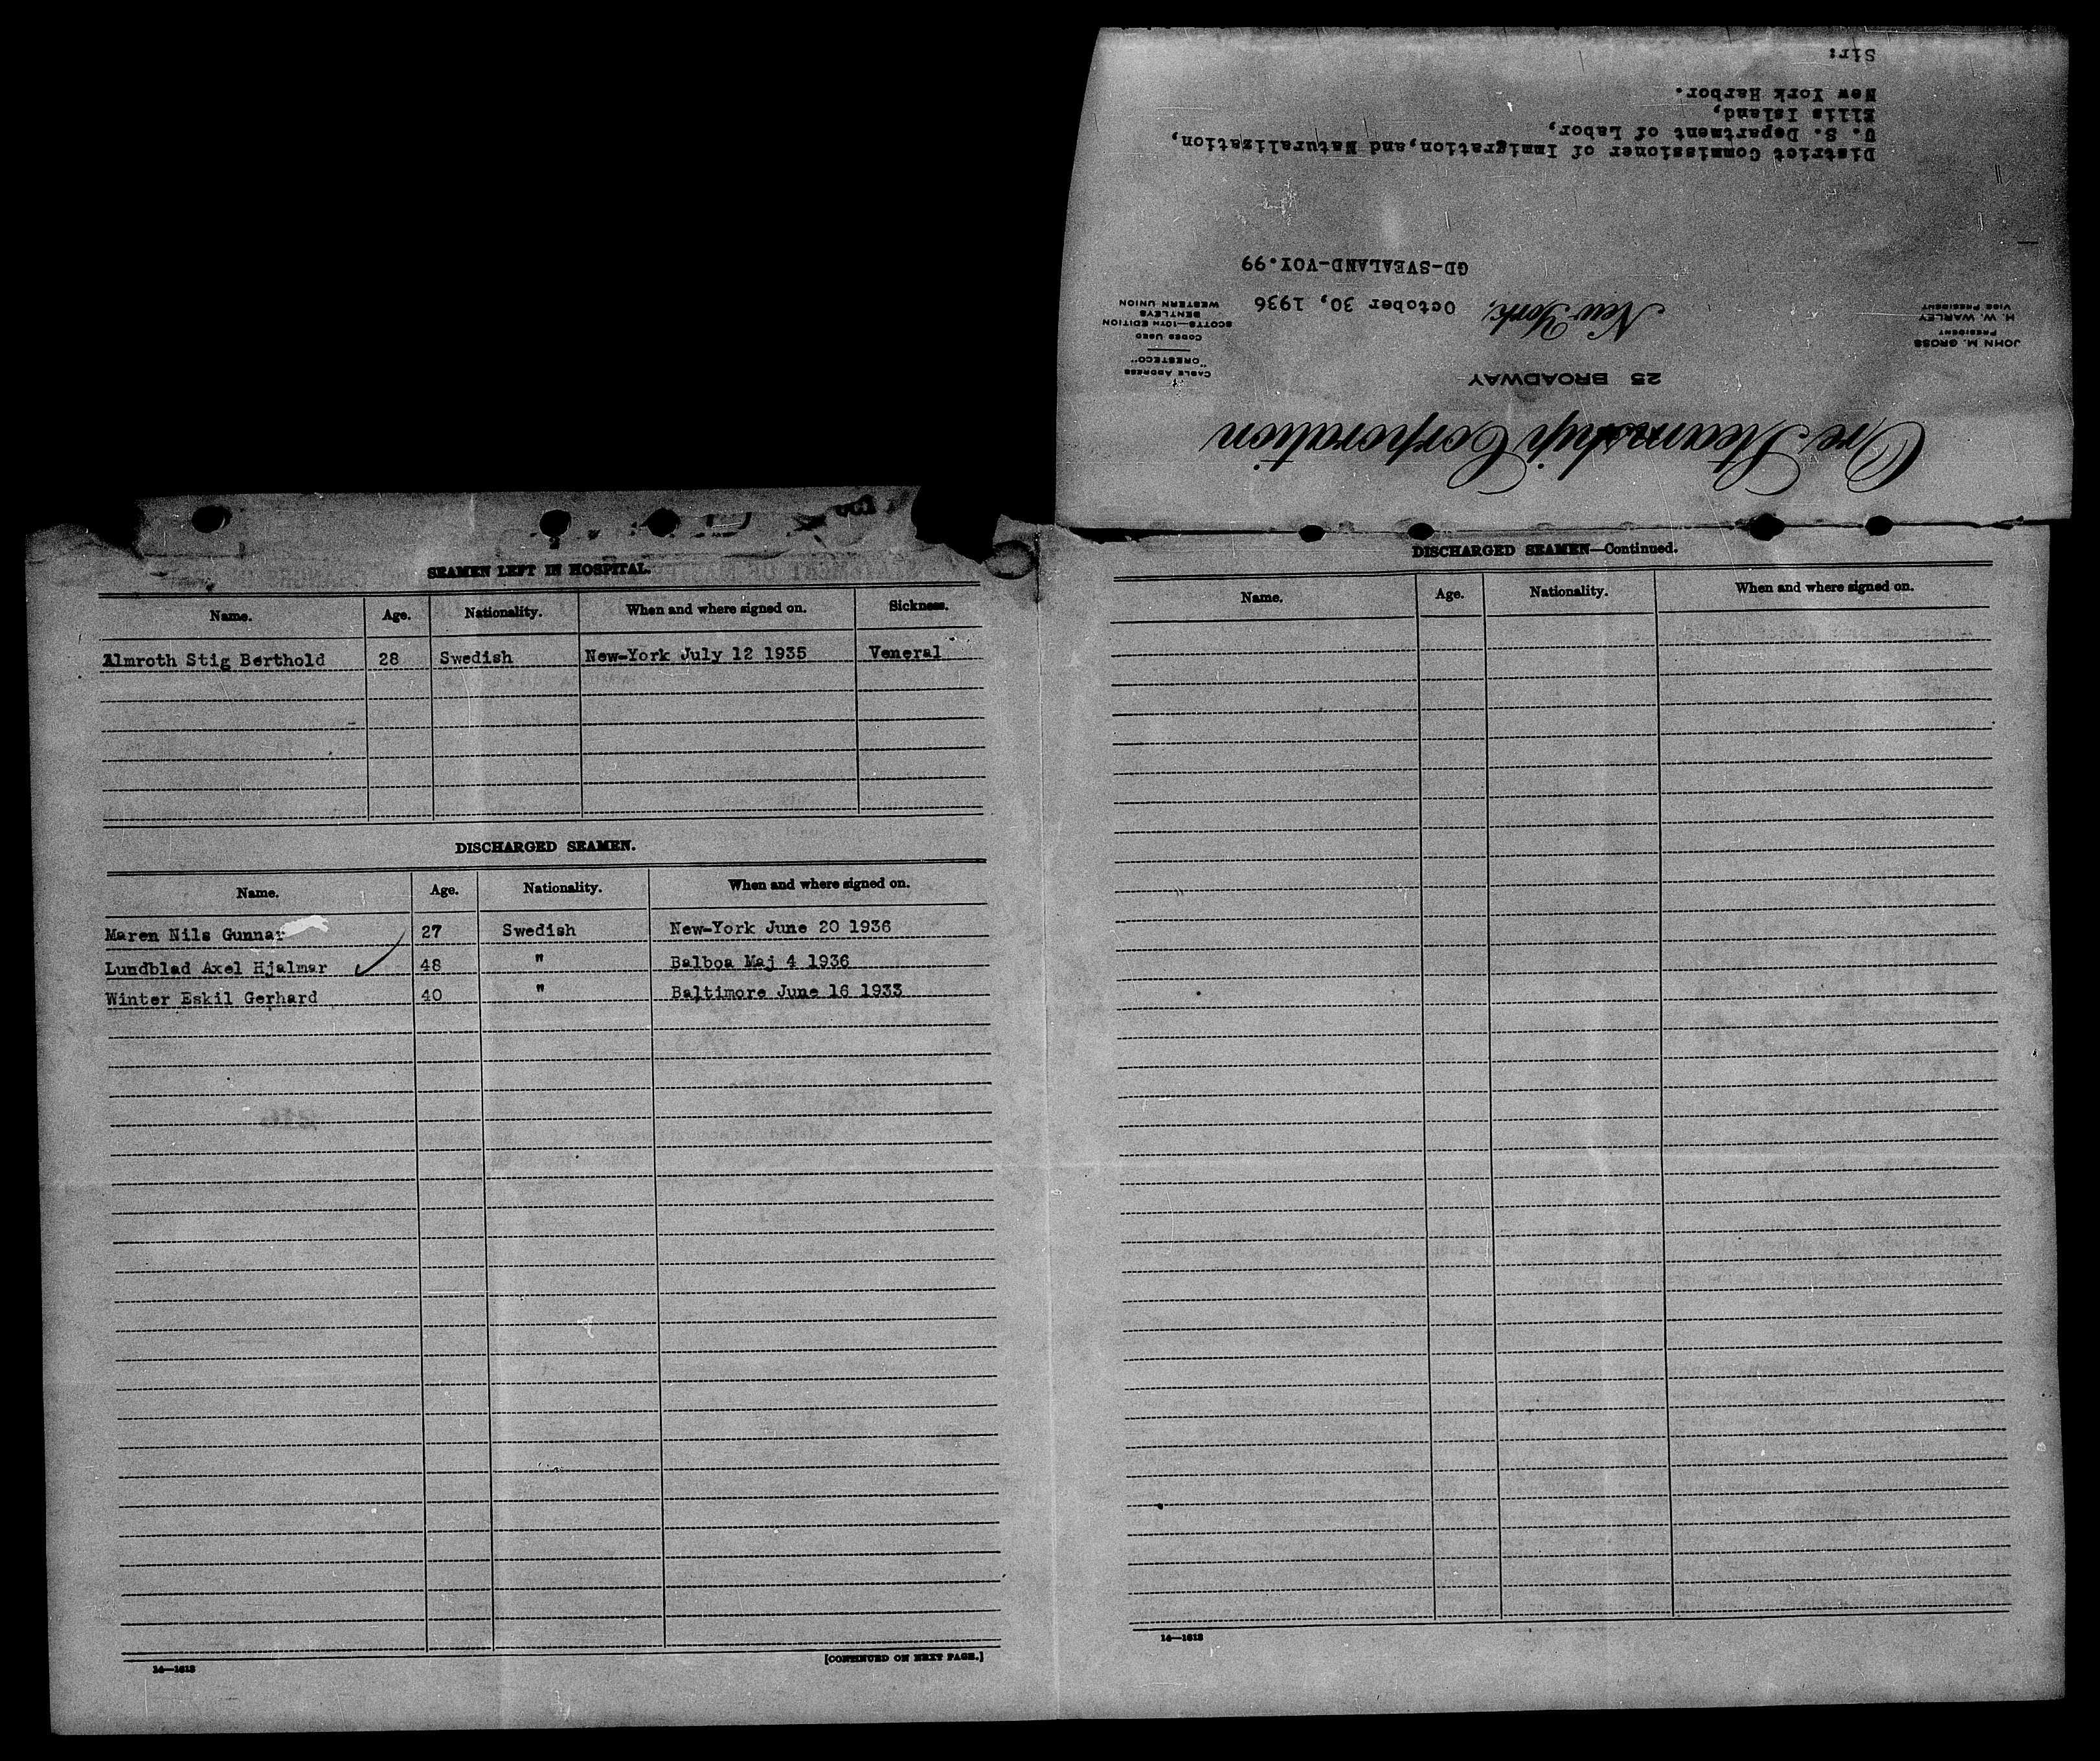 Ore Steamship Corporation
25 BROADWAY
JOHN M. GROSS
PRESIDENT
H. W. WARLEY
VICE PRESIDENT
CABLE ADDRESS
"ORESTECO"
CODES USED
SCOTTS—10TH EDITION
BENTLEYS
WESTERN UNION
New York, October 30, 1936
GD-SVEALAND-VOY.99
District Commissioner of Immigration,and Naturalization,
U. S. Department of Labor,
Ellis Island,
New York Harbor.
Sir:
SEAMEN LEFT IN HOSPITAL.
Name. Age. Nationality. When and where signed on. Sickness.
Almroth Stig Berthold 28 Swedish New-York July 12 1935 Veneral
DISCHARGED SEAMEN.
Name. Age. Nationality. When and where signed on.
Maren Nils Gunnar 27 Swedish New-York June 20 1936
Lundblad Axel Hjalmar 48 " Balboa Maj 4 1936
Winter Eskil Gerhard 40 " Baltimore June 16 1933
14—1613
[CONTINUED ON NEXT PAGE.]
DISCHARGED SEAMEN—Continued.
Name. Age. Nationality. When and where signed on.
14—1613